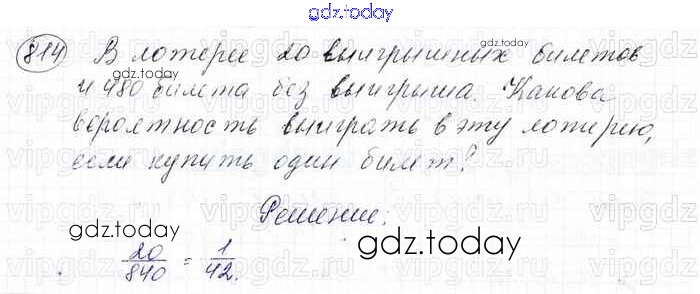 gdz.today
814 В лотерее 20 выигрышных билетов
gdz.today
и 480 билета без выигрыша. Какова
вероятность выиграть в эту лотерею,
если купить один билет?
gdz.today
Решение:
gdz.today
20/840 = 1/42.
gdz.today